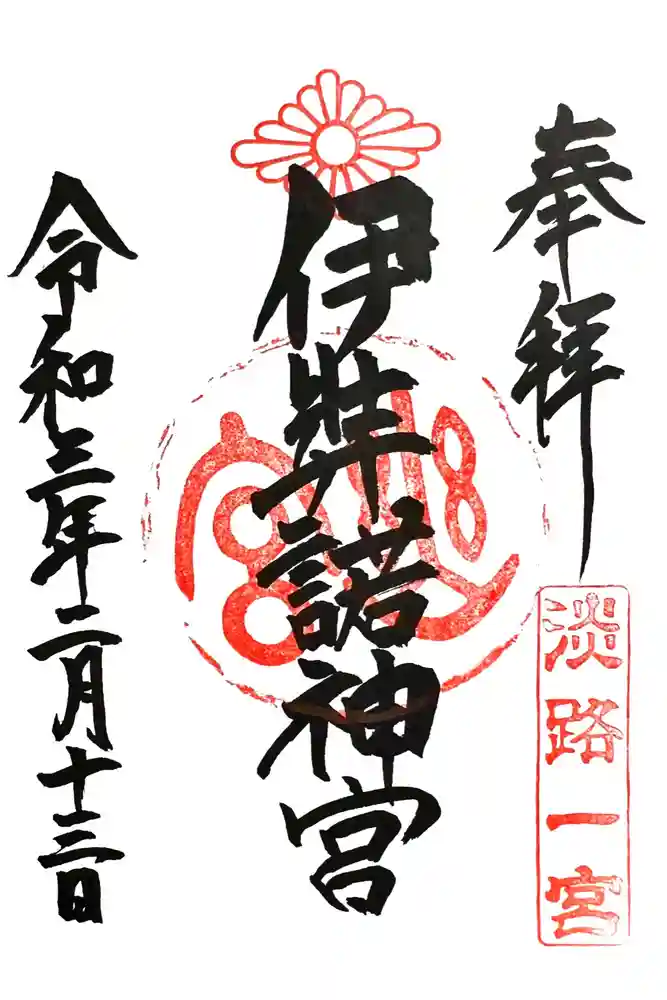 奉拝
淡路一宮
伊弉諾神宮
令和三年二月十三日